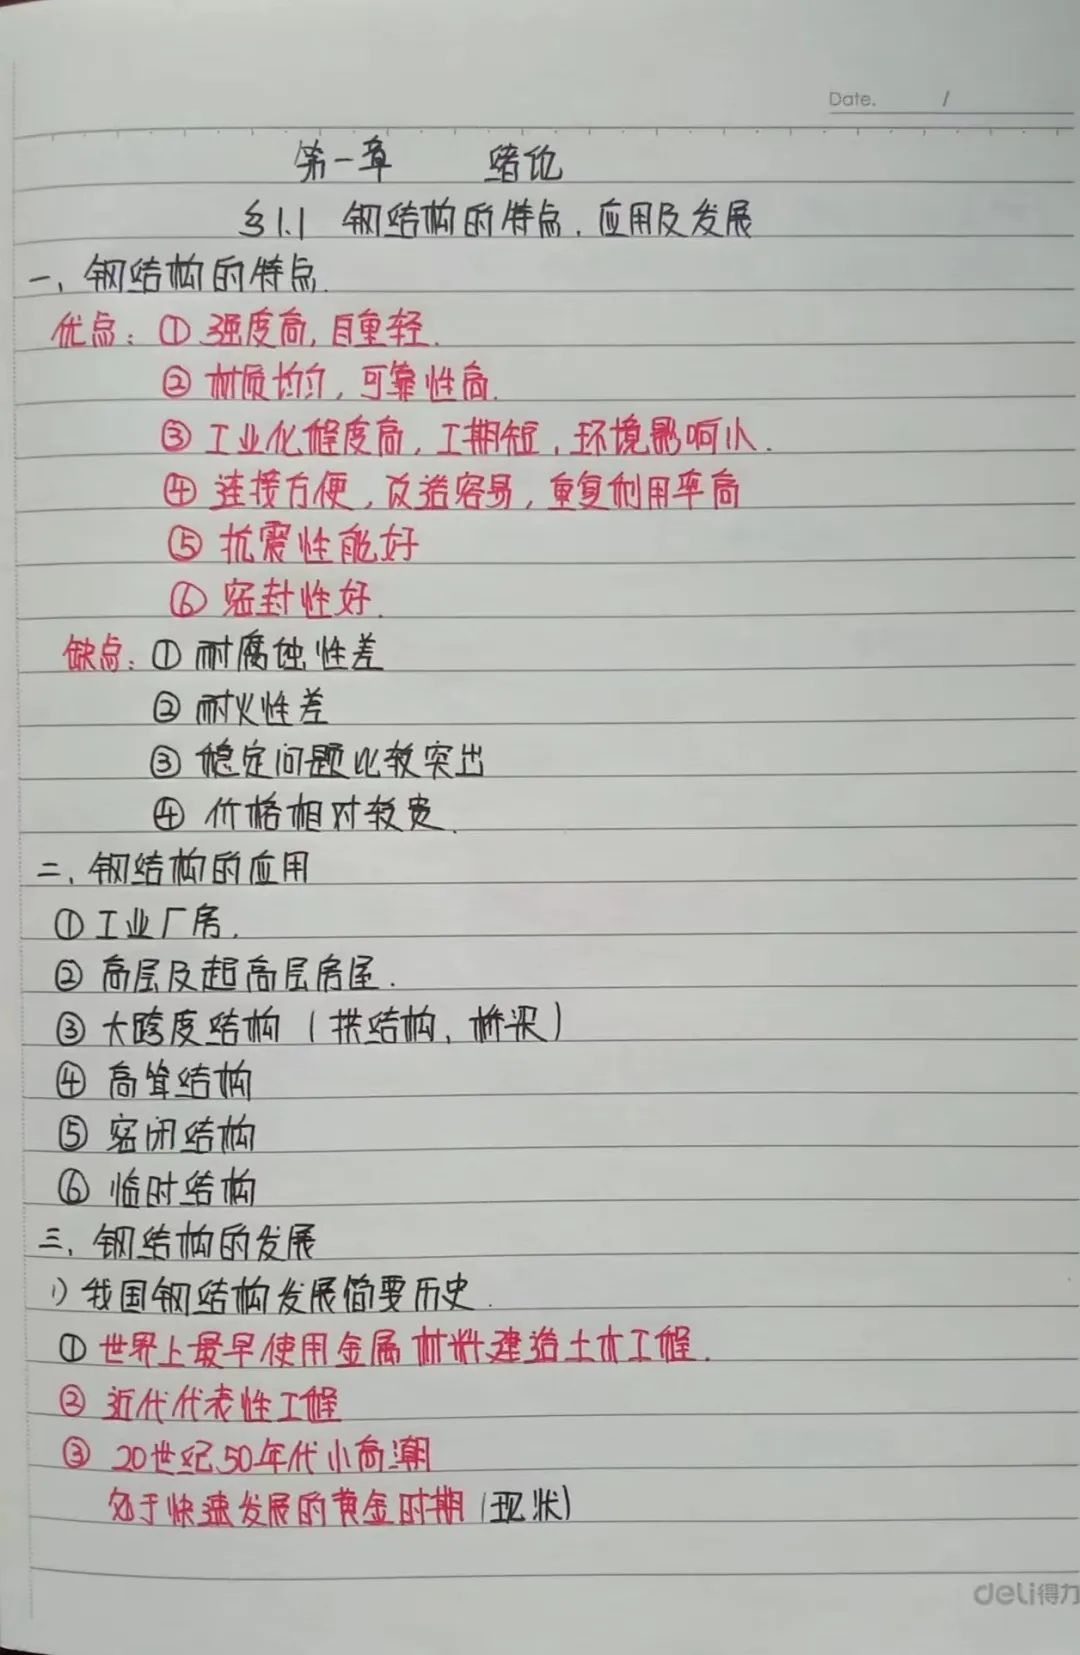 Date. /
第一章 绪论
§1.1 钢结构的特点、应用及发展
一、钢结构的特点.
优点：① 强度高, 自重轻.
② 材质均匀, 可靠性高.
③ 工业化程度高, 工期短, 环境影响小.
④ 连接方便, 改造容易, 重复利用率高
⑤ 抗震性能好
⑥ 密封性好.
缺点：① 耐腐蚀性差
② 耐火性差
③ 稳定问题比较突出
④ 价格相对较贵.
二、钢结构的应用
① 工业厂房.
② 高层及超高层房屋.
③ 大跨度结构（拱结构、桥梁）
④ 高耸结构
⑤ 密闭结构
⑥ 临时结构
三、钢结构的发展
1) 我国钢结构发展简要历史.
① 世界上最早使用金属材料建造土木工程.
② 近代代表性工程
③ 20世纪50年代小高潮
处于快速发展的黄金时期（现状）
deli得力